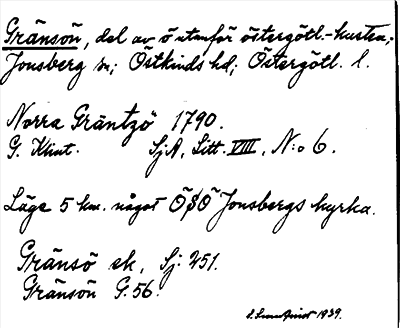 Gränsön, del av ö utanför östergötl.-kusten;
Jonsberg sn; Östkinds hd; Östergötl. l.
Norra Gräntzö 1790.
G. Klint. SjA, Litt. VIII, N:o 6.
Läge 5 km. något ÖSÖ Jonsbergs kyrka.
Gränsö ek, Sj: 251.
Gränsön G. 56.
1939.